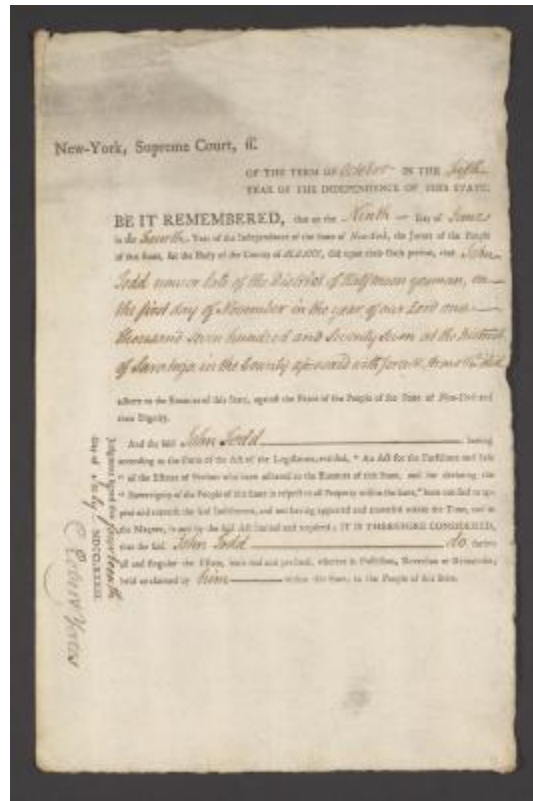 New-York, Supreme Court, ss.
OF THE TERM OF October IN THE Fifth
YEAR OF THE INDEPENDENCE OF THIS STATE.
BE IT REMEMBERED, that on the Ninth Day of June
in the Fourth Year of the Independence of the State of New-York, the Jurors of the People
of this State, for the Body of the County of ALBANY, did upon their Oath present, that John
Todd late of the District of Halfmoon yeoman, on
the first day of November in the year of our Lord one
thousand seven hundred and Seventy Seven at the District
of Saratoga in the County aforesaid with force & Arms &c. did
adhere to the Enemies of this State, against the Peace of the People of the State of New-York and
their Dignity.
And the said John Todd having
according to the Form of the Act of the Legislature, entitled, " An Act for the Forfeiture and Sale
" of the Estates of Persons who have adhered to the Enemies of this State, and for declaring the
" Sovereignty of the People of this State in respect to all Property within the same," been notified to ap-
pear and traverse the said Indictment, and not having appeared and traversed within the Time, and in
the Manner, in and by the said Act limited and required ; IT IS THEREFORE CONSIDERED,
that the said John Todd do forfeit
all and singular the Estate, both real and personal, whether in Possession, Reversion or Remainder,
held or claimed by him within this State, to the People of this State.
Judgment signed this fourteenth
day of July MDCCLXXXIII.
Robert Yates